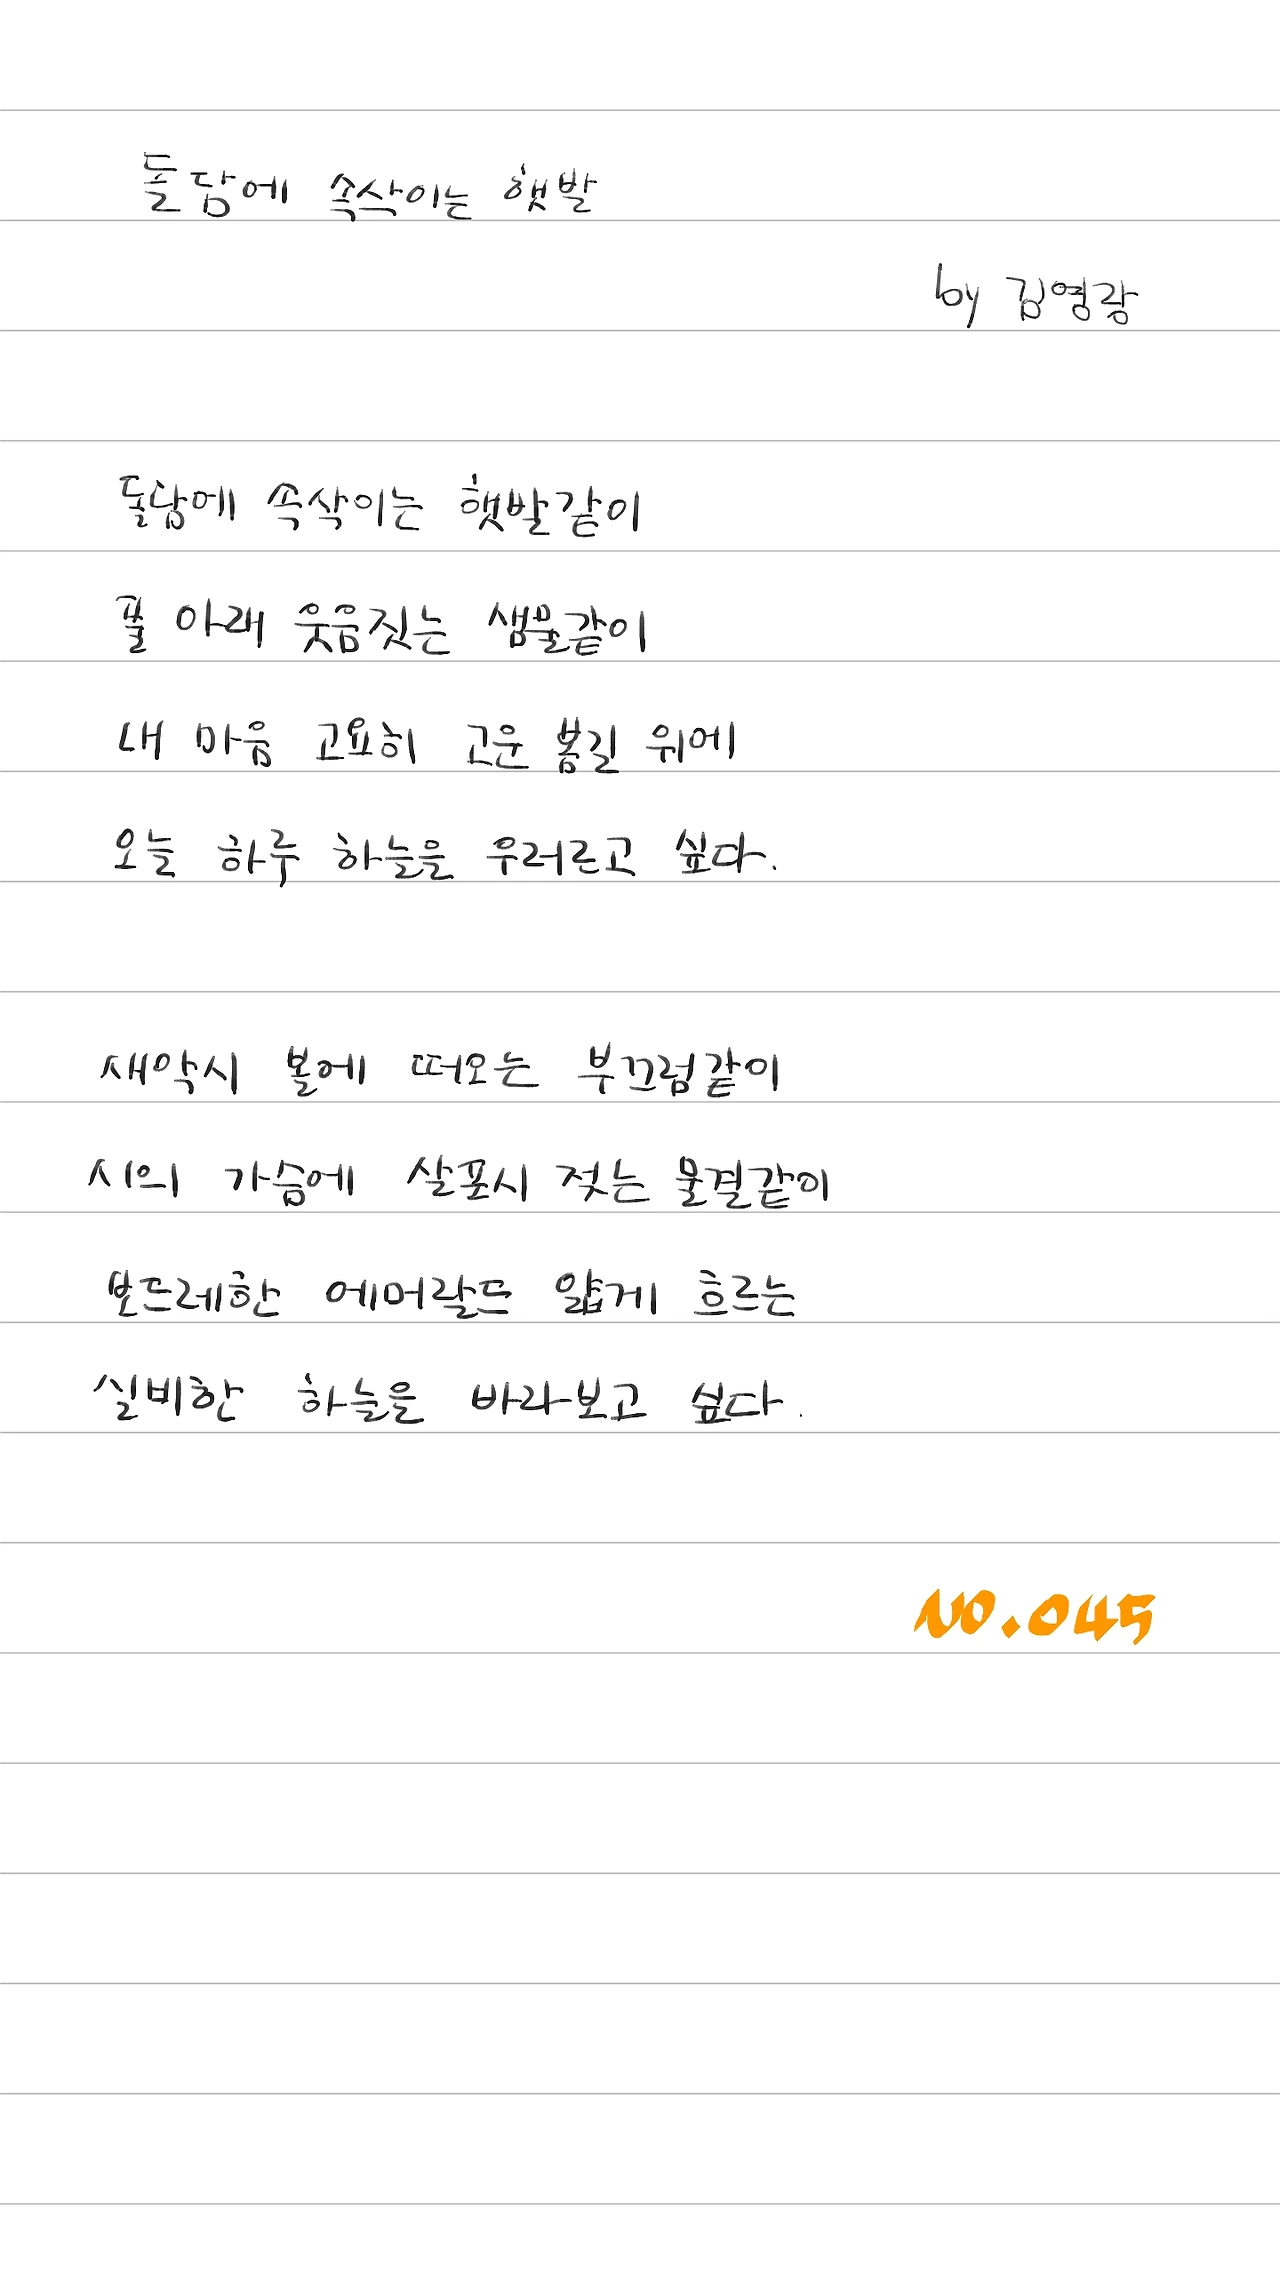 돌담에 속삭이는 햇발
by 김영랑
돌담에 속삭이는 햇발같이
풀 아래 웃음짓는 샘물같이
내 마음 고요히 고운 봄길 위에
오늘 하루 하늘을 우러르고 싶다.
새악시 볼에 떠오는 부끄럼같이
시의 가슴에 살포시 젖는 물결같이
보드레한 에머랄드 얇게 흐르는
실비한 하늘을 바라보고 싶다.
NO.045